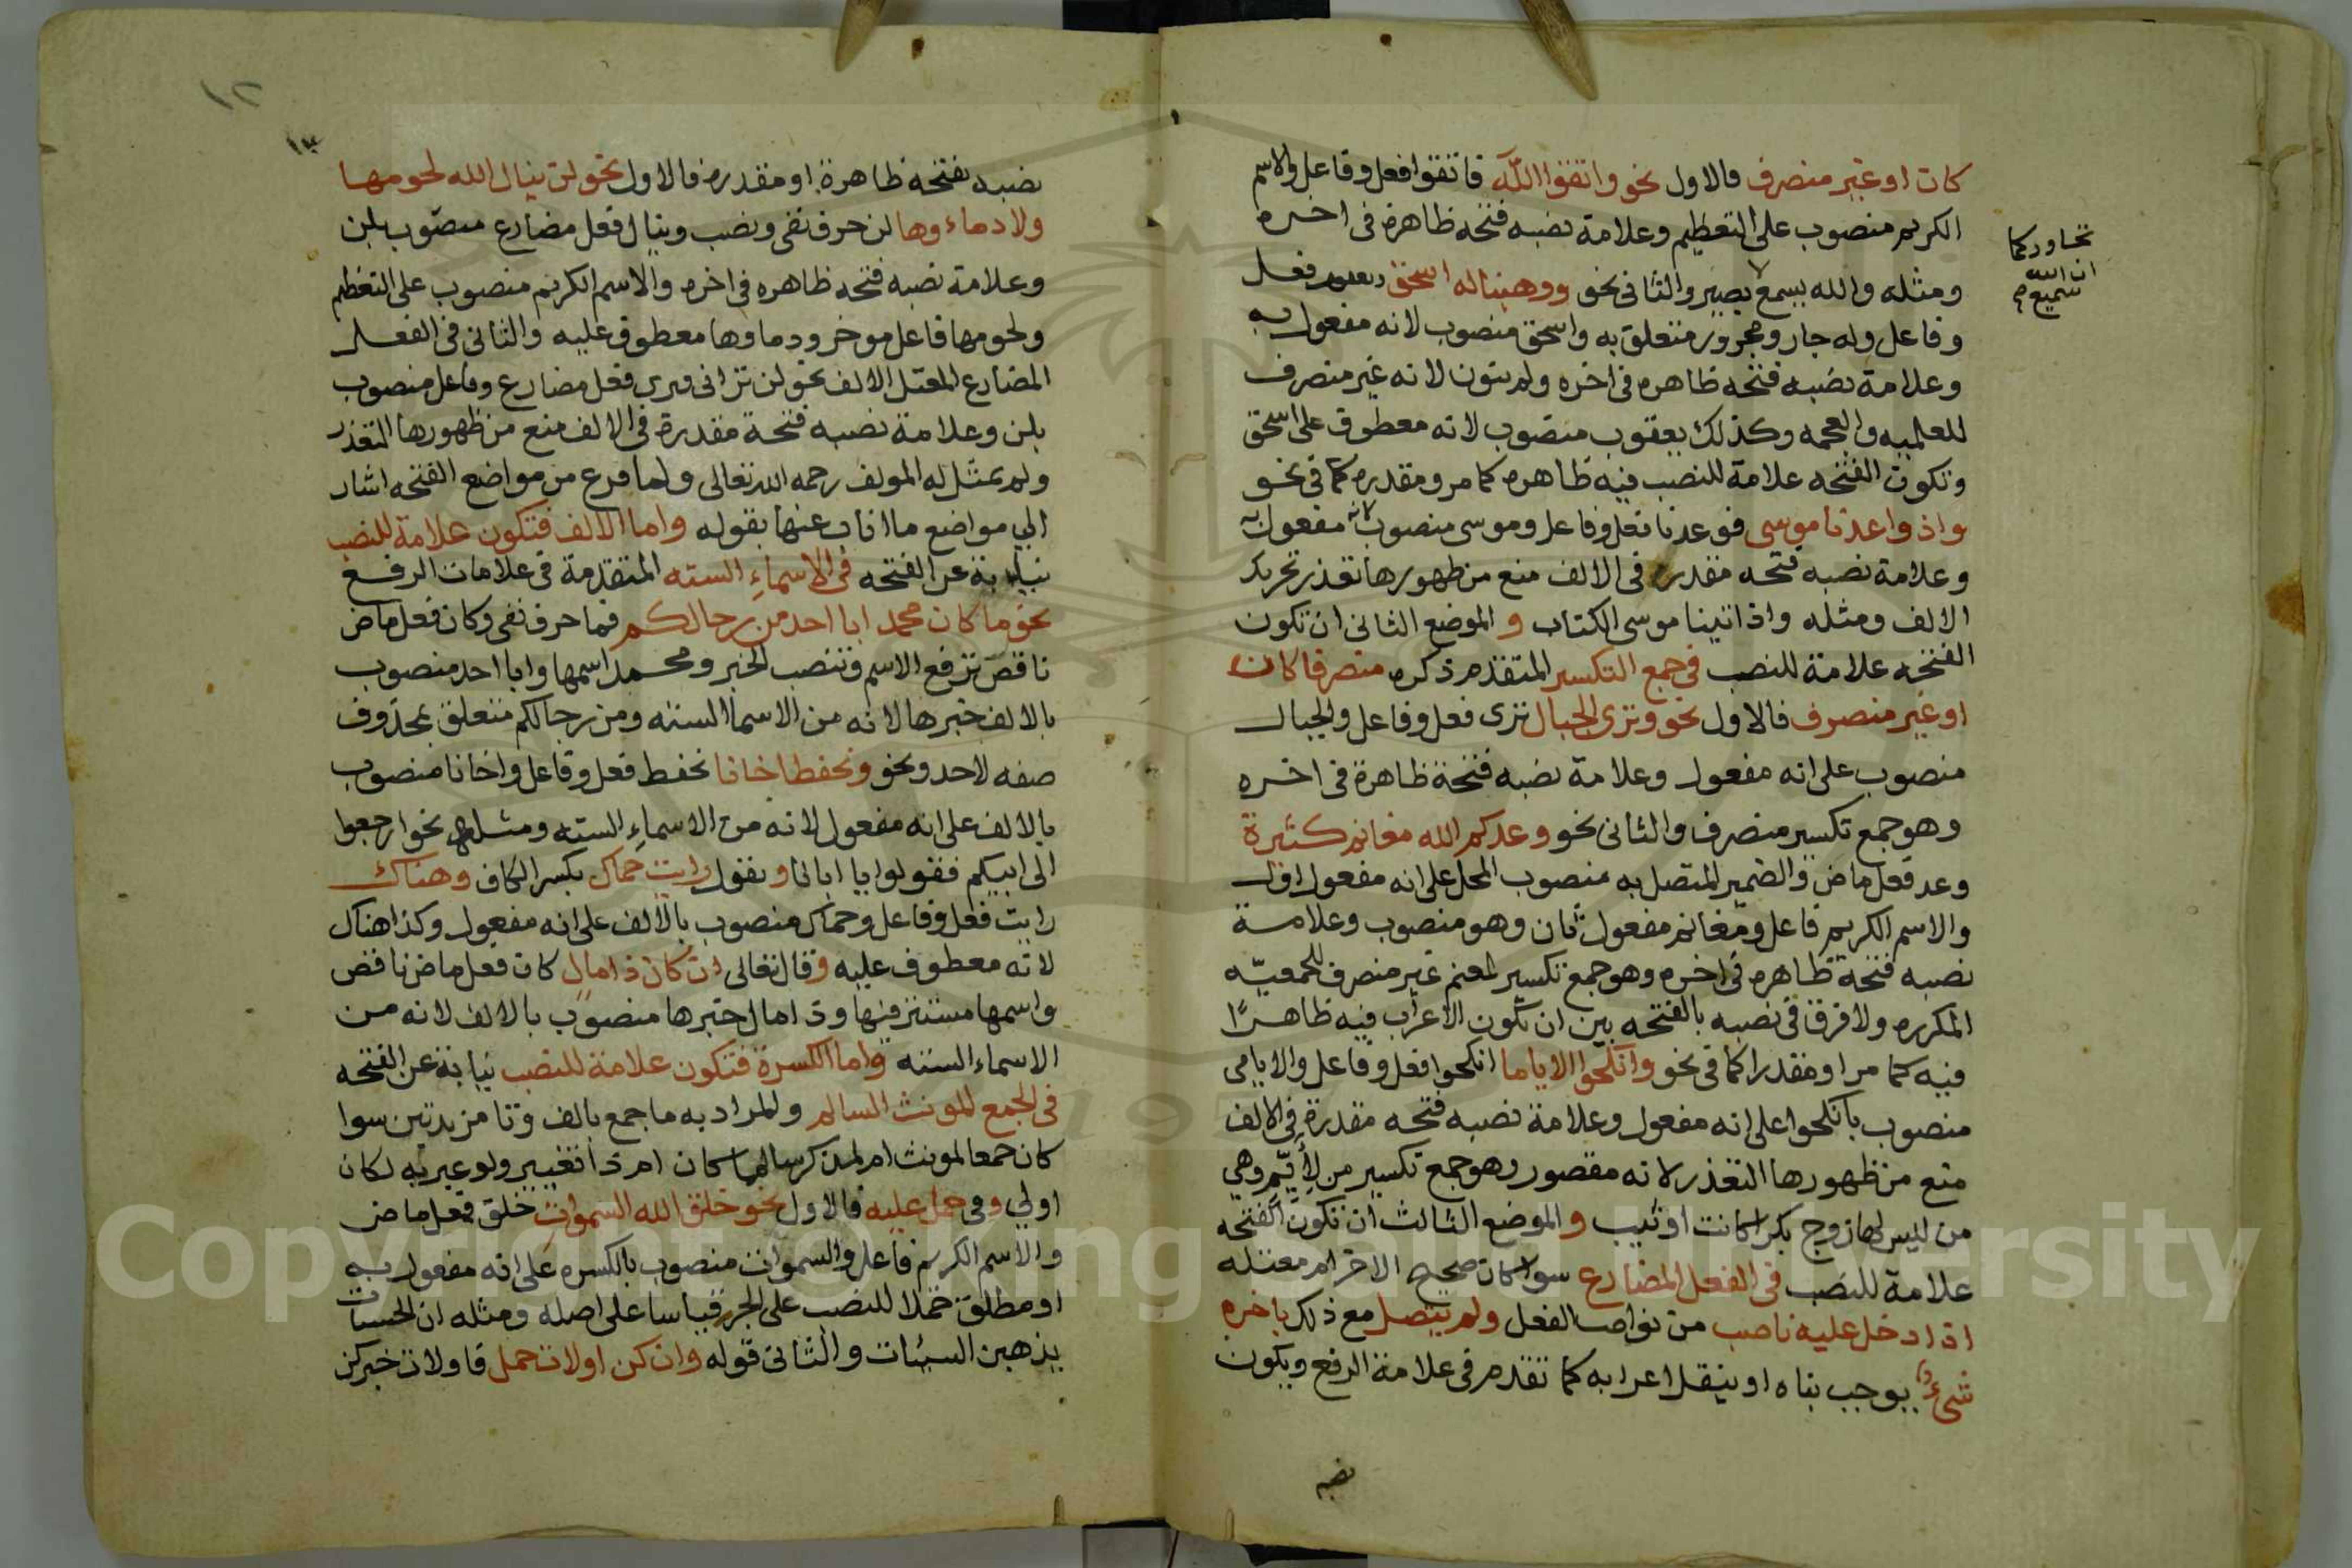 كان او غير منصرف فالاول نحو واتقوا الله فاتقوا فعل وفاعل والاسم
الكريم منصوب على التعظيم وعلامة نصبه فتحة ظاهرة في اخره
ومثله والله يسمع بصير والثاني نحو ووهبنا له اسحق ويعقوب فعل
وفاعل وله جار ومجرور متعلق به واسحق منصوب لانه مفعول به
وعلامة نصبه فتحه ظاهره في اخره ولم ينون لانه غير منصرف
للعلميه والعجمه وكذلك يعقوب منصوب لانه معطوف على اسحق
وتكون الفتحه علامة للنصب فيه ظاهره كما مر ومقدره كما في نحو
واذ واعدنا موسى فوعدنا فعل وفاعل وموسى منصوب لانه مفعول به
وعلامة نصبه فتحه مقدره في الالف منع من ظهورها تعذر تحريك
الالف ومثله واذ اتينا موسى الكتاب و الموضع الثاني ان تكون
الفتحه علامة للنصب في جمع التكسير المتقدم ذكره منصرفا كان
او غير منصرف فالاول نحو وترى الجبال ترى فعل وفاعل والجبال
منصوب على انه مفعول وعلامة نصبه فتحة ظاهرة في اخره
وهو جمع تكسير منصرف والثاني نحو وعدكم الله مغانم كثيرة
وعد فعل ماض والضمير المتصل به منصوب المحل على انه مفعول اول
والاسم الكريم فاعل ومغانم مفعول ثان وهو منصوب وعلامة
نصبه فتحة ظاهره في اخره وهو جمع تكسير لمغنم غير منصرف للجمعيّه
المكرره ولا فرق في نصبه بالفتحه بين ان يكون الاعراب فيه ظاهرًا
فيه كما مر او مقدرا كما في نحو وانكحوا الاياما انكحوا فعل وفاعل والايامى
منصوب بانكحوا على انه مفعول وعلامة نصبه فتحه مقدرة في الالف
منع من ظهورها التعذر لانه مقصور وهو جمع تكسير من لأيّم وهي
من لليس لها زوج بكرا كانت او ثيب و الموضع الثالث ان تكون الفتحه
علامة للنصب في الفعل المضارع سوا كان صحيح الاخر ام معتله
اذا دخل عليه ناصب من نواصب الفعل ولم يتصل مع ذلك باخره
شيء يوجب بناه او ينقل اعرابه كما تقدم في علامة الرفع ويكون
نصبه
تحاوركما
ان الله
سميع
١٢
١٣
نصبه بفتحه ظاهرة او مقدره فالاول نحو لن ينال الله لحومها
ولا دماءوها لن حرف نفي ونصب وينال فعل مضارع منصوب بلن
وعلامة نصبه فتحه ظاهره في اخره والاسم الكريم منصوب على التعظيم
ولحومها فاعل موخر ودماوها معطوف عليه والثاني في الفعل
المضارع المعتل الالف نحو لن تراني فيرى فعل مضارع وفاعل منصوب
بلن وعلامة نصبه فتحة مقدرة في الالف منع من ظهورها التعذر
ولم يمثل له المولف رحمه الله تعالى ولما فرع من مواضع الفتحه اشار
الي مواضع ما اناب عنها بقوله واما الالف فتكون علامة للنصب
نيابة عن الفتحه في الاسماءِ السته المتقدمة في علامات الرفع
نحو ما كان محمد ابا احد من رجالكم فما حرف نفي وكان فعل ماض
ناقص ترفع الاسم وتنصب الخبر ومحمد اسمها وابا احد منصوب
بالالف خبرها لانه من الاسما السته ومن رجالكم متعلق بمحذوف
صفه لاحد ونحو ونحفظ اخانا نحفظ فعل وفاعل واخانا منصوب
بالالف على انه مفعول لانه من الاسماءِ السته ومثله نحو ارجعوا
الى ابيكم فقولوا يا ابانا و نقول رايت حماك بكسر الكاف وهناك
رايت فعل وفاعل وحماك منصوب بالالف على انه مفعول وكذا هناك
لانه معطوف عليه وقال تعالى ان كان ذا مال كان فعل ماض ناقص
واسمها مستتر فيها وذا مال خبرها منصوب بالالف لانه من
الاسماء السته واما الكسرة فتكون علامة للنصب نيابة عن الفتحه
في الجمع المونث السالم والمراد به ما جمع بالف وتا مزيدتين سوا
كان جمعا لمونث ام لمذكر سالما كان ام ذا تغيير ولو عبر به لكان
اولي وفي حمل عليه فالاول نحو خلق الله السموات خلق فعل ماض
والاسم الكريم فاعل والسموات منصوب بالكسره على انه مفعول به
او مطلق حملا للنصب على الجر قياسا على اصله ومثله ان الحسنات
يذهبن السيئات والثاني قوله وان كن اولات حمل فاولات خبر كن
Copyright © King Saud University